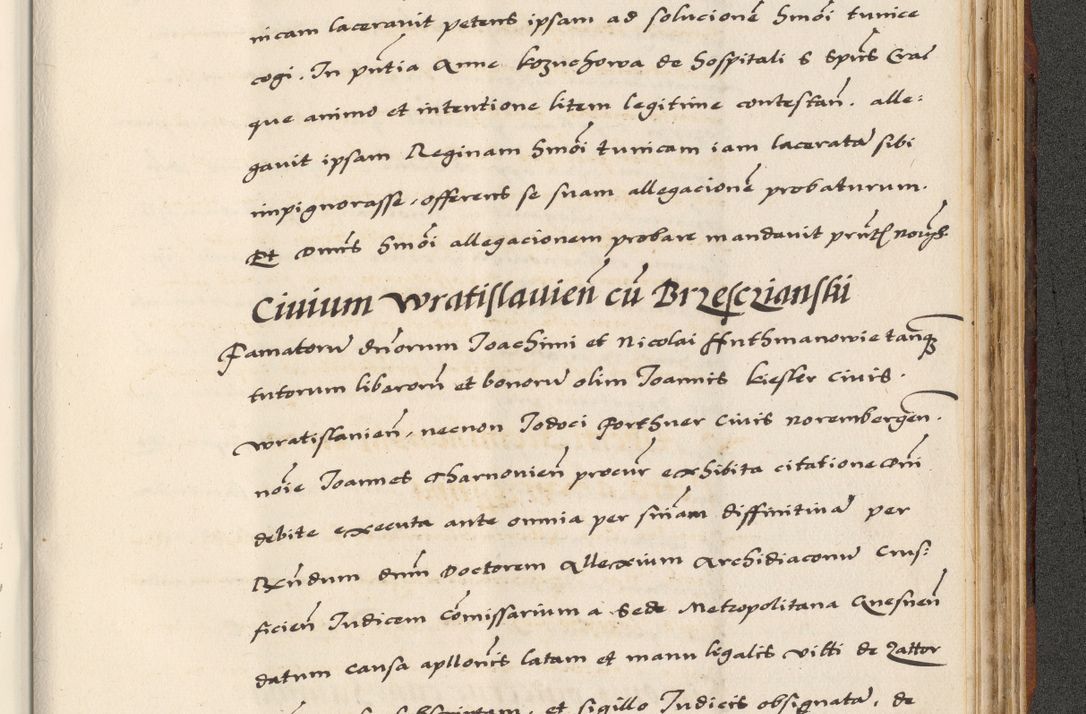 nicam laceravit petens ipsam ad solucionẽ hmõi tunice
cogi. In pñtia Anne kozuchowa de hospitali S Spũs Crac̃
que animo et intentione litem legitime contestañ. alle:
gavit ipsam Reginam hmõi tunicam iam laceratã sibi
impignorasse, offerens se suam allegacionẽ probaturum.
Et Dnus hmõi allegacionem probare mandavit pñt
Civium Wratislavieñ cũ Brzesczianskii
Famatorũ dñorum Joachimi et Nicolai Huthmanowie tanq̃
tutorum liberorũ et bonorũ olim Joannis kiesler civis.
Wratislavieñ, necnon Jodoci Forthner Civis Norembergeñ.
nõie Joannes Tharnovieñ procur̃ exhibita citatione coñi
debite executa ante omnia per sniam diffinitivã per
Rñdum dñm Doctorem Allexium Archidiaconũ Crus:
ficieñ Judicem Cõmissarium a Sede Metropolitana Gnesneñ
datum causa apllonis latam et manu legalis viłti de Zattor
et sigillo Judicis obsignatã, de